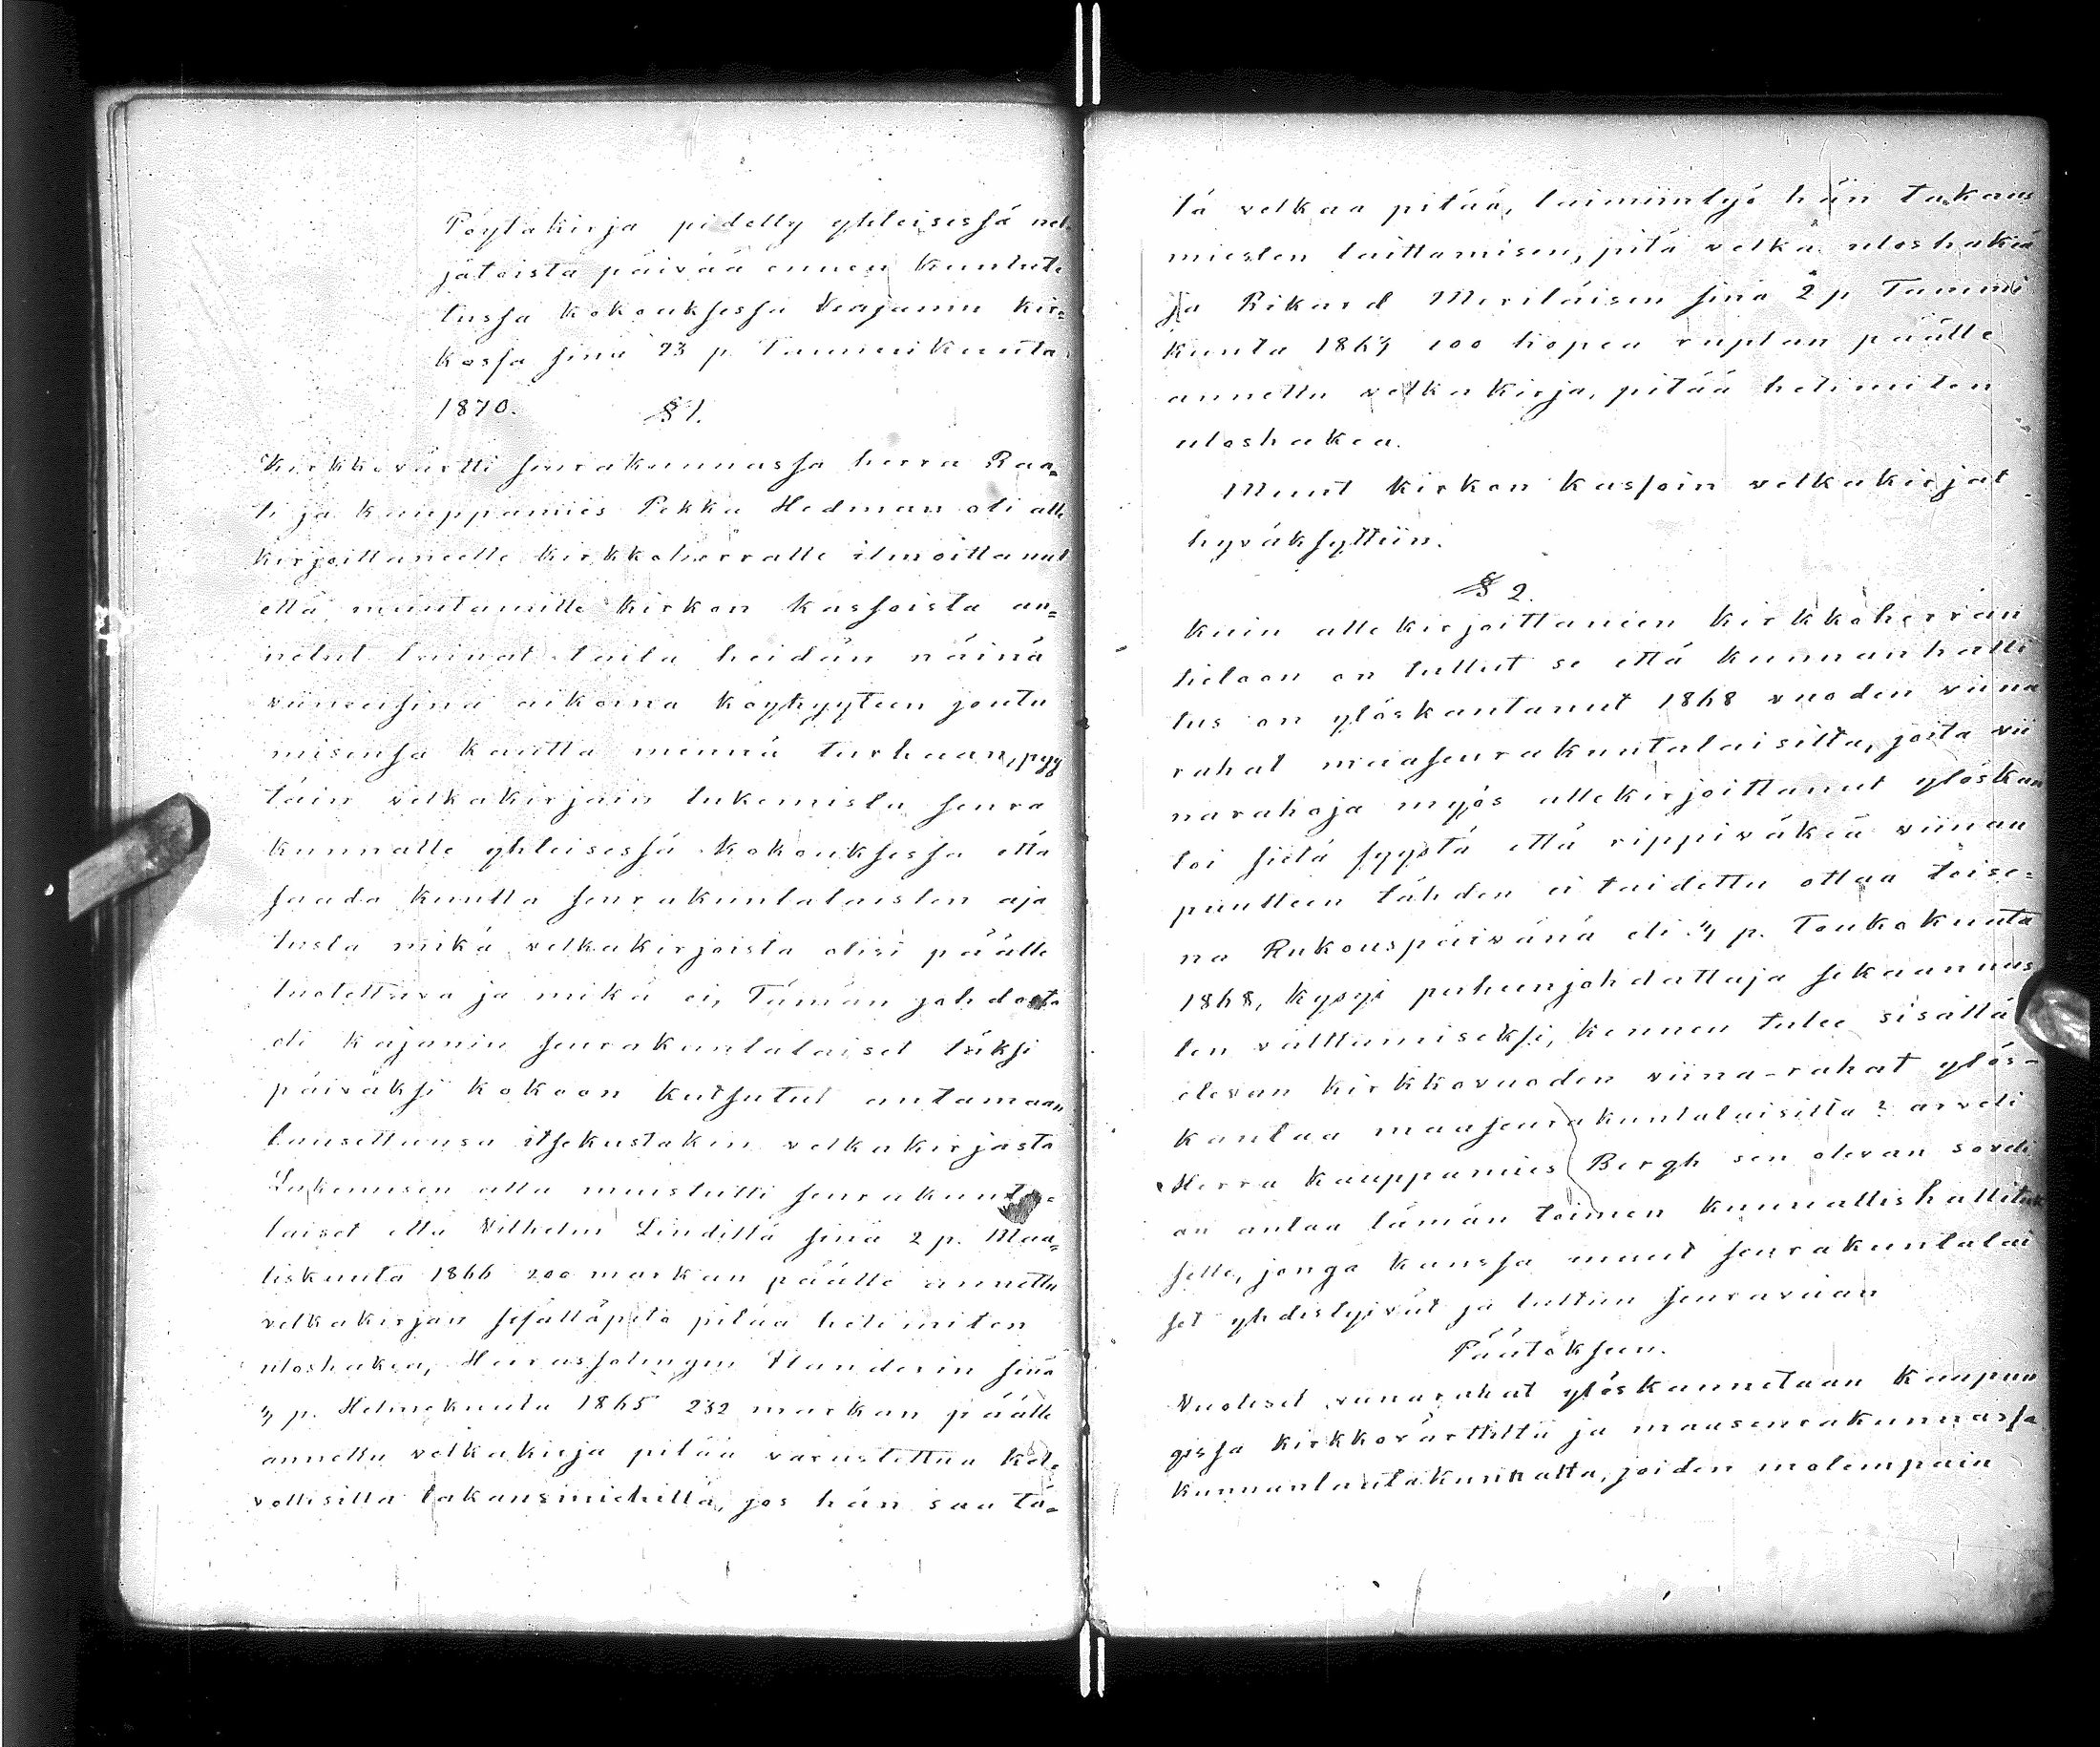 Pöytäkirja pidetty yhteisessä nel-
jätoista päivää ennen kuulute-
tussa kokouksessa Veajanin kir=
kossa sinä 23 p. Tammikuuta
1870. § 1.
Kirkkovärtti seurakunnassa herra Raa=
ti ja kauppamies Pekka Hedman oli alle
kirjoittaneelle kirkkoherralle ilmoittanut
että muutamille kirkon kassoista an=
netut lainat taita heidän näinä
viimeisinä aikoina köyhyyteen joutu
misensa kautta mennä turhaan, pyy
täin velkakirjain lukemista seura
kunnalle yhteisessä kokouksessa että
saada kuulla seurakuntalaisten aja
tusta mikä velkakirjoista olisi päälle
luotettava ja mikä ei, Tämän johdosta
oli Kajanin seurakuntalaiset täksi
päiväksi kokoon kutsutut antamaan
lausettansa itsekustakin velkakirjasta
Lukemisen alla muistutti seurakunta=
laiset että Vilhelm Lindiltä sinä 2 p. Maa=
liskuuta 1866 200 markan päälle annettu
velkakirjan sisältäpitö pitää heti miten
uloshakea, Flanderin sinä
4 p. Helmekuuta 1865 232 markan päälle
annettu velkakirja pitää varustettaa kel-
vollisilla takausmiehillä, jos hän saa tä=
tä velkaa pitää, laiminlyö hän takaus
miesten laittamisen, pitä velka uloshakea
ja Rikard Meriläisen sinä 2 p Tammi
kuuta 1864 100 hopea ruplan päälle
annettu velkakirja, pitää heti miten
uloshakea.
Muut kirkon kassoin velkakirjat
hyväksyttiin.
§ 2.
Kuin allekirjoittaneen Kirkkoherran
tietoon on tullut se että kunnanhalli
tus on ylöskantanut 1868 vuoden viina
rahat maaseurakuntalaisilta, joita vii
narahoja myös allekirjoittanut ylöskan
toi siitä syystä että rippiväkeä viinan
puutteen tähden ei taidettu ottaa toise=
na Rukouspäivänä eli 4 p. Toukokuuta
1868, kysyi puheenjohdattaja sekaannus
ten välttämiseksi, kennen tulee sisällä
olevan kirkkovuoden viina-rahat ylös-
kantaa maaseurakuntalaisilta? arveli
Herra Kauppamies Bergh sen olevan soveli
an antaa tämän toimen kunnallishallituk
selle, jonga kanssa muut seurakuntalai
set yhdistyivät ja tultiin seuraavaan
Päätökseen.
Vuotiset viinarahat ylöskannetaan Kaupun
gissa kirkkovärttiltä ja maaseurakunnassa
kunnanlautakunnalta, joiden molempain